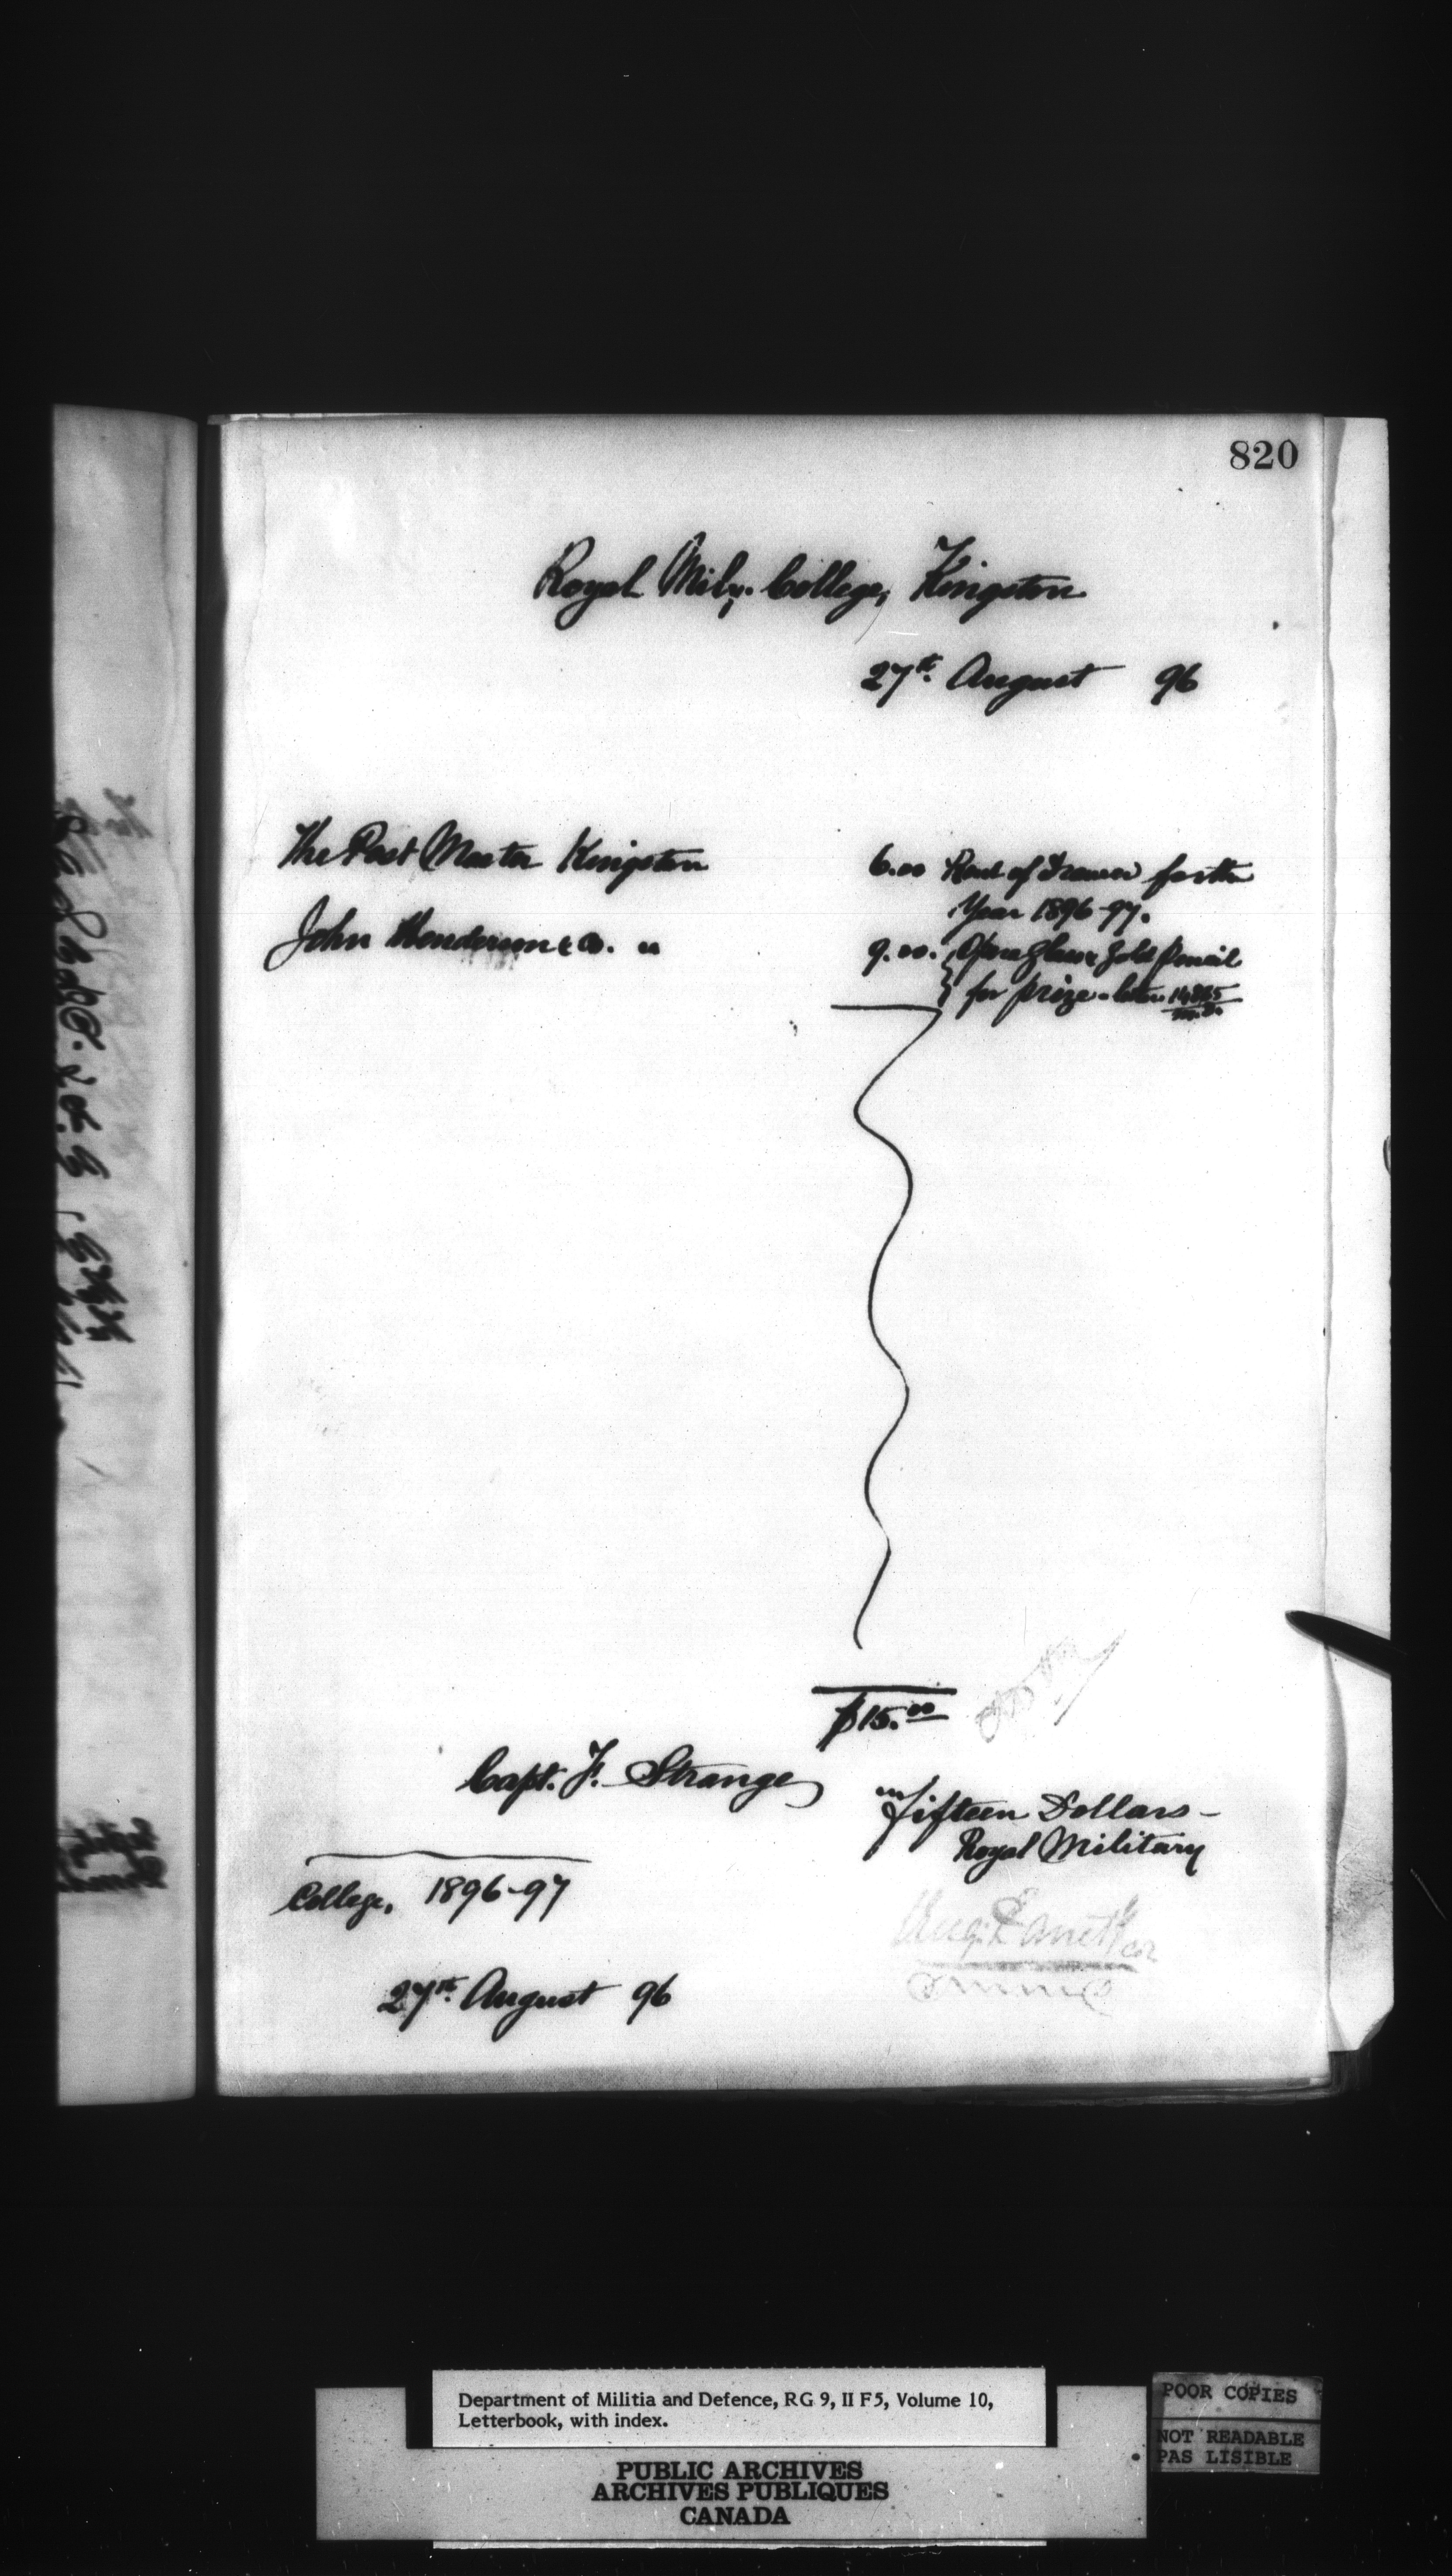 820
Royal Mily. College, Kingston
27th. August 96
The Post Master Kingston 6.00 Rent of Drawer for the
Year 1896-97.
John Henderson & Co. " 9.00. Opera Glass & Gold Pencil
for prize - letter
$15.00
Capt. F. Strange
Fifteen Dollars -
Royal Military
College, 1896-97
27th. August 96
Department of Militia and Defence, RG 9, II F5, Volume 10,
Letterbook, with index.
PUBLIC ARCHIVES
ARCHIVES PUBLIQUES
CANADA
POOR COPIES
NOT READABLE
PAS LISIBLE